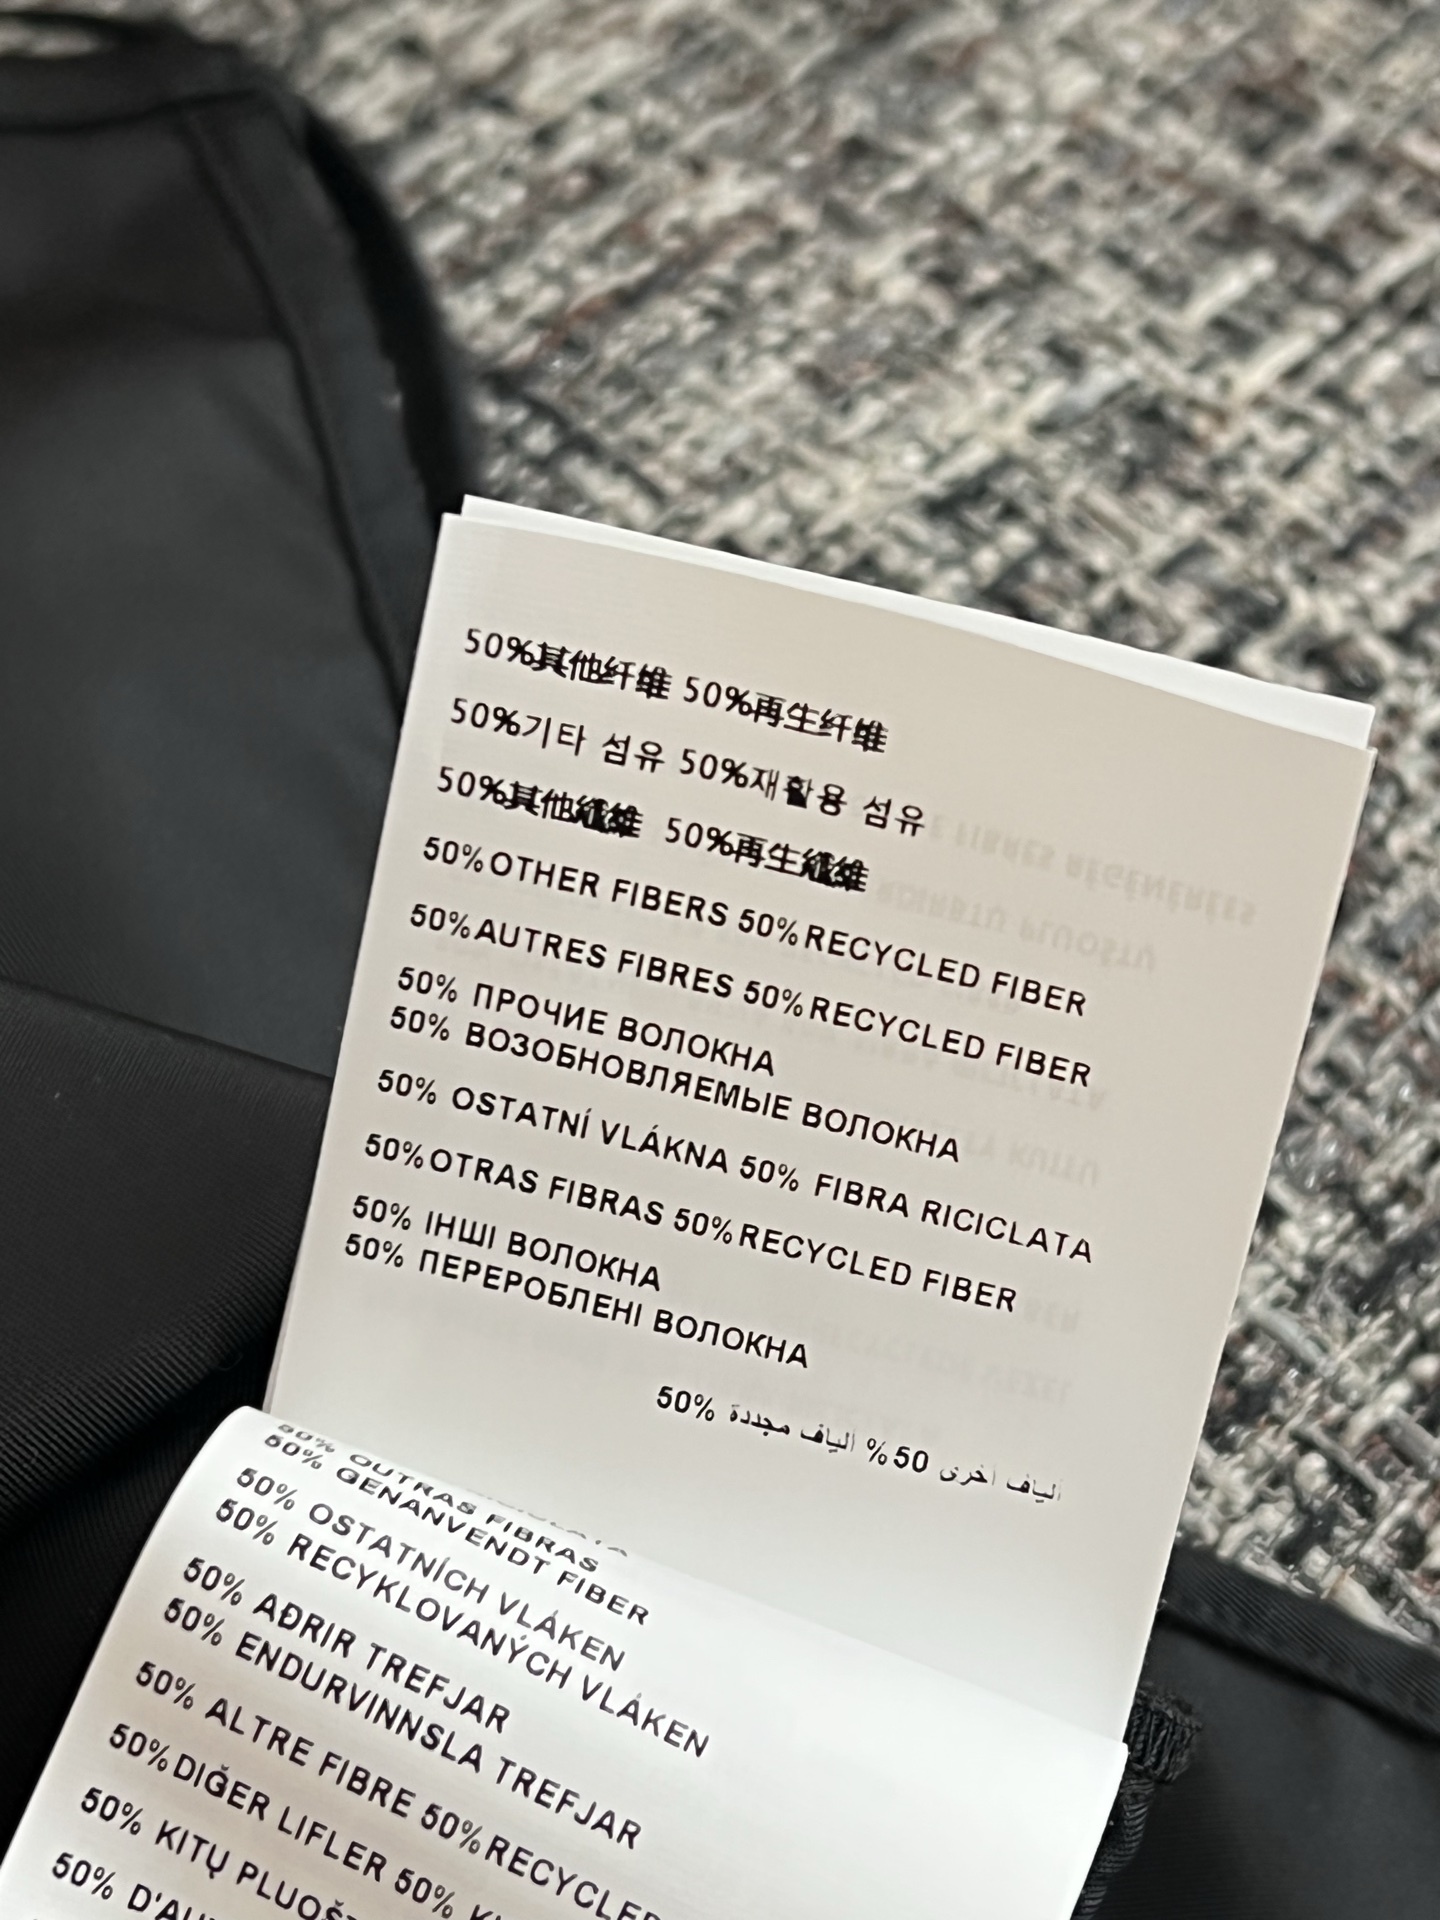 50%其他纤维 50%再生纤维
50%기타 섬유 50%재활용 섬유
50%其他纖維 50%再生纖維
50%OTHER FIBERS 50%RECYCLED FIBER
50%AUTRES FIBRES 50%RECYCLED FIBER
50% ПРОЧИЕ ВОЛОКНА
50% ВОЗОБНОВЛЯЕМЫЕ ВОЛОКНА
50% OSTATNÍ VLÁKNA 50% FIBRA RICICLATA
50%OTRAS FIBRAS 50%RECYCLED FIBER
50% ІНШІ ВОЛОКНА
50% ПЕРЕРОБЛЕНІ ВОЛОКНА
ألياف أخرى 50% ألياف مجددة 50%
50% OUTRAS FIBRAS
50% GENANVENDT FIBER
50% OSTATNÍCH VLÁKEN
50% RECYKLOVANÝCH VLÁKEN
50% AÐRIR TREFJAR
50% ENDURVINNSLA TREFJAR
50% ALTRE FIBRE 50%RECYCLED
50%DIĞER LIFLER 50%
50% KITŲ
50%